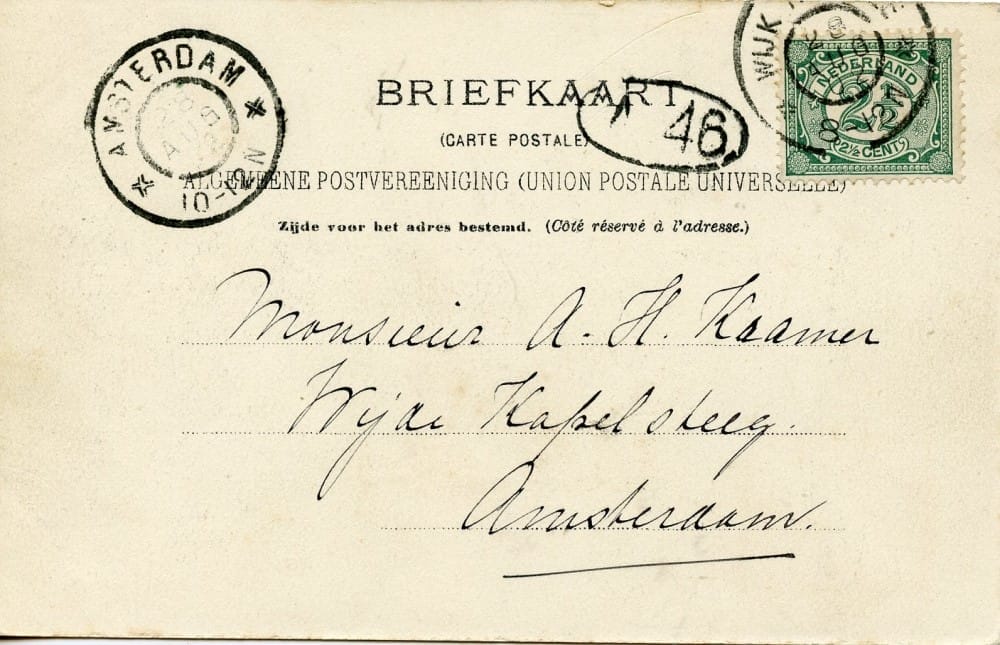 BRIEFKAART
(CARTE POSTALE)
ALGEMEENE POSTVEREENIGING (UNION POSTALE UNIVERSELLE)
Zijde voor het adres bestemd. (Côté réservé à l'adresse.)
AMSTERDAM
AUG
10-12 N
46
WIJK
8-12 V
NEDERLAND
2½
2½ CENT
Monsieur A. H. Kaamer
Wijde Kapelsteeg.
Amsterdam.